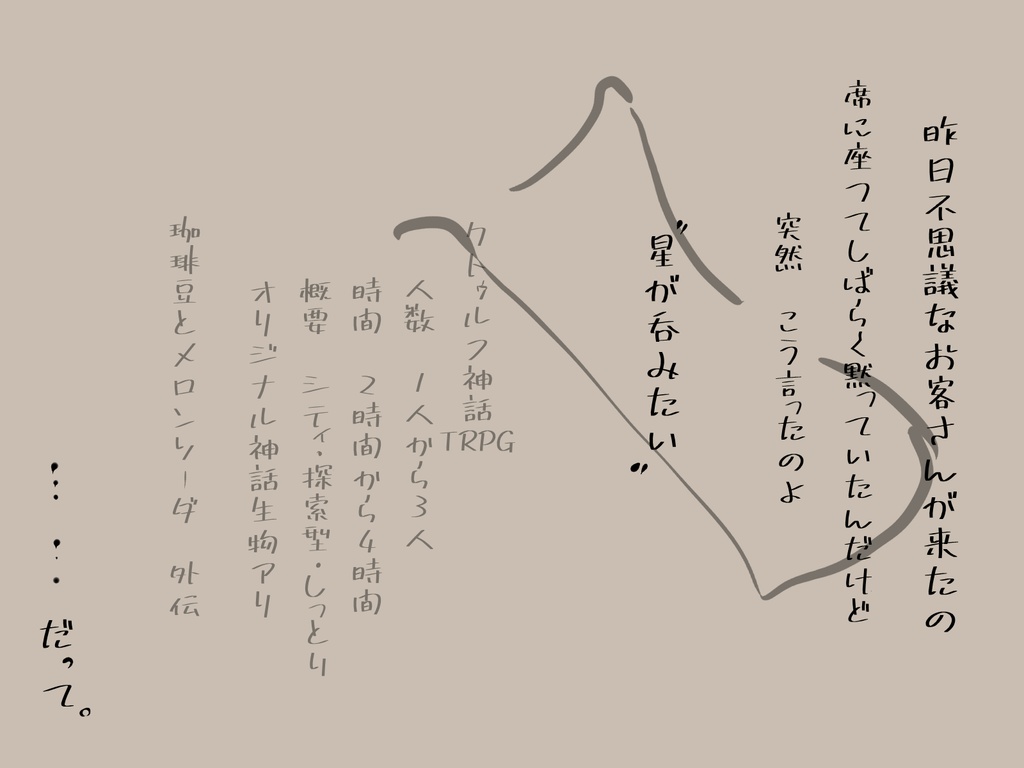 昨日不思議なお客さんが来たの
席に座ってしばらく黙っていたんだけど
突然　こう言ったのよ
“星が呑みたい”
クトゥルフ神話TRPG
人数　1人から3人
時間　2時間から4時間
概要　シティ・探索型・しっとり
オリジナル神話生物アリ
珈琲豆とメロンソーダ　外伝
……だって。